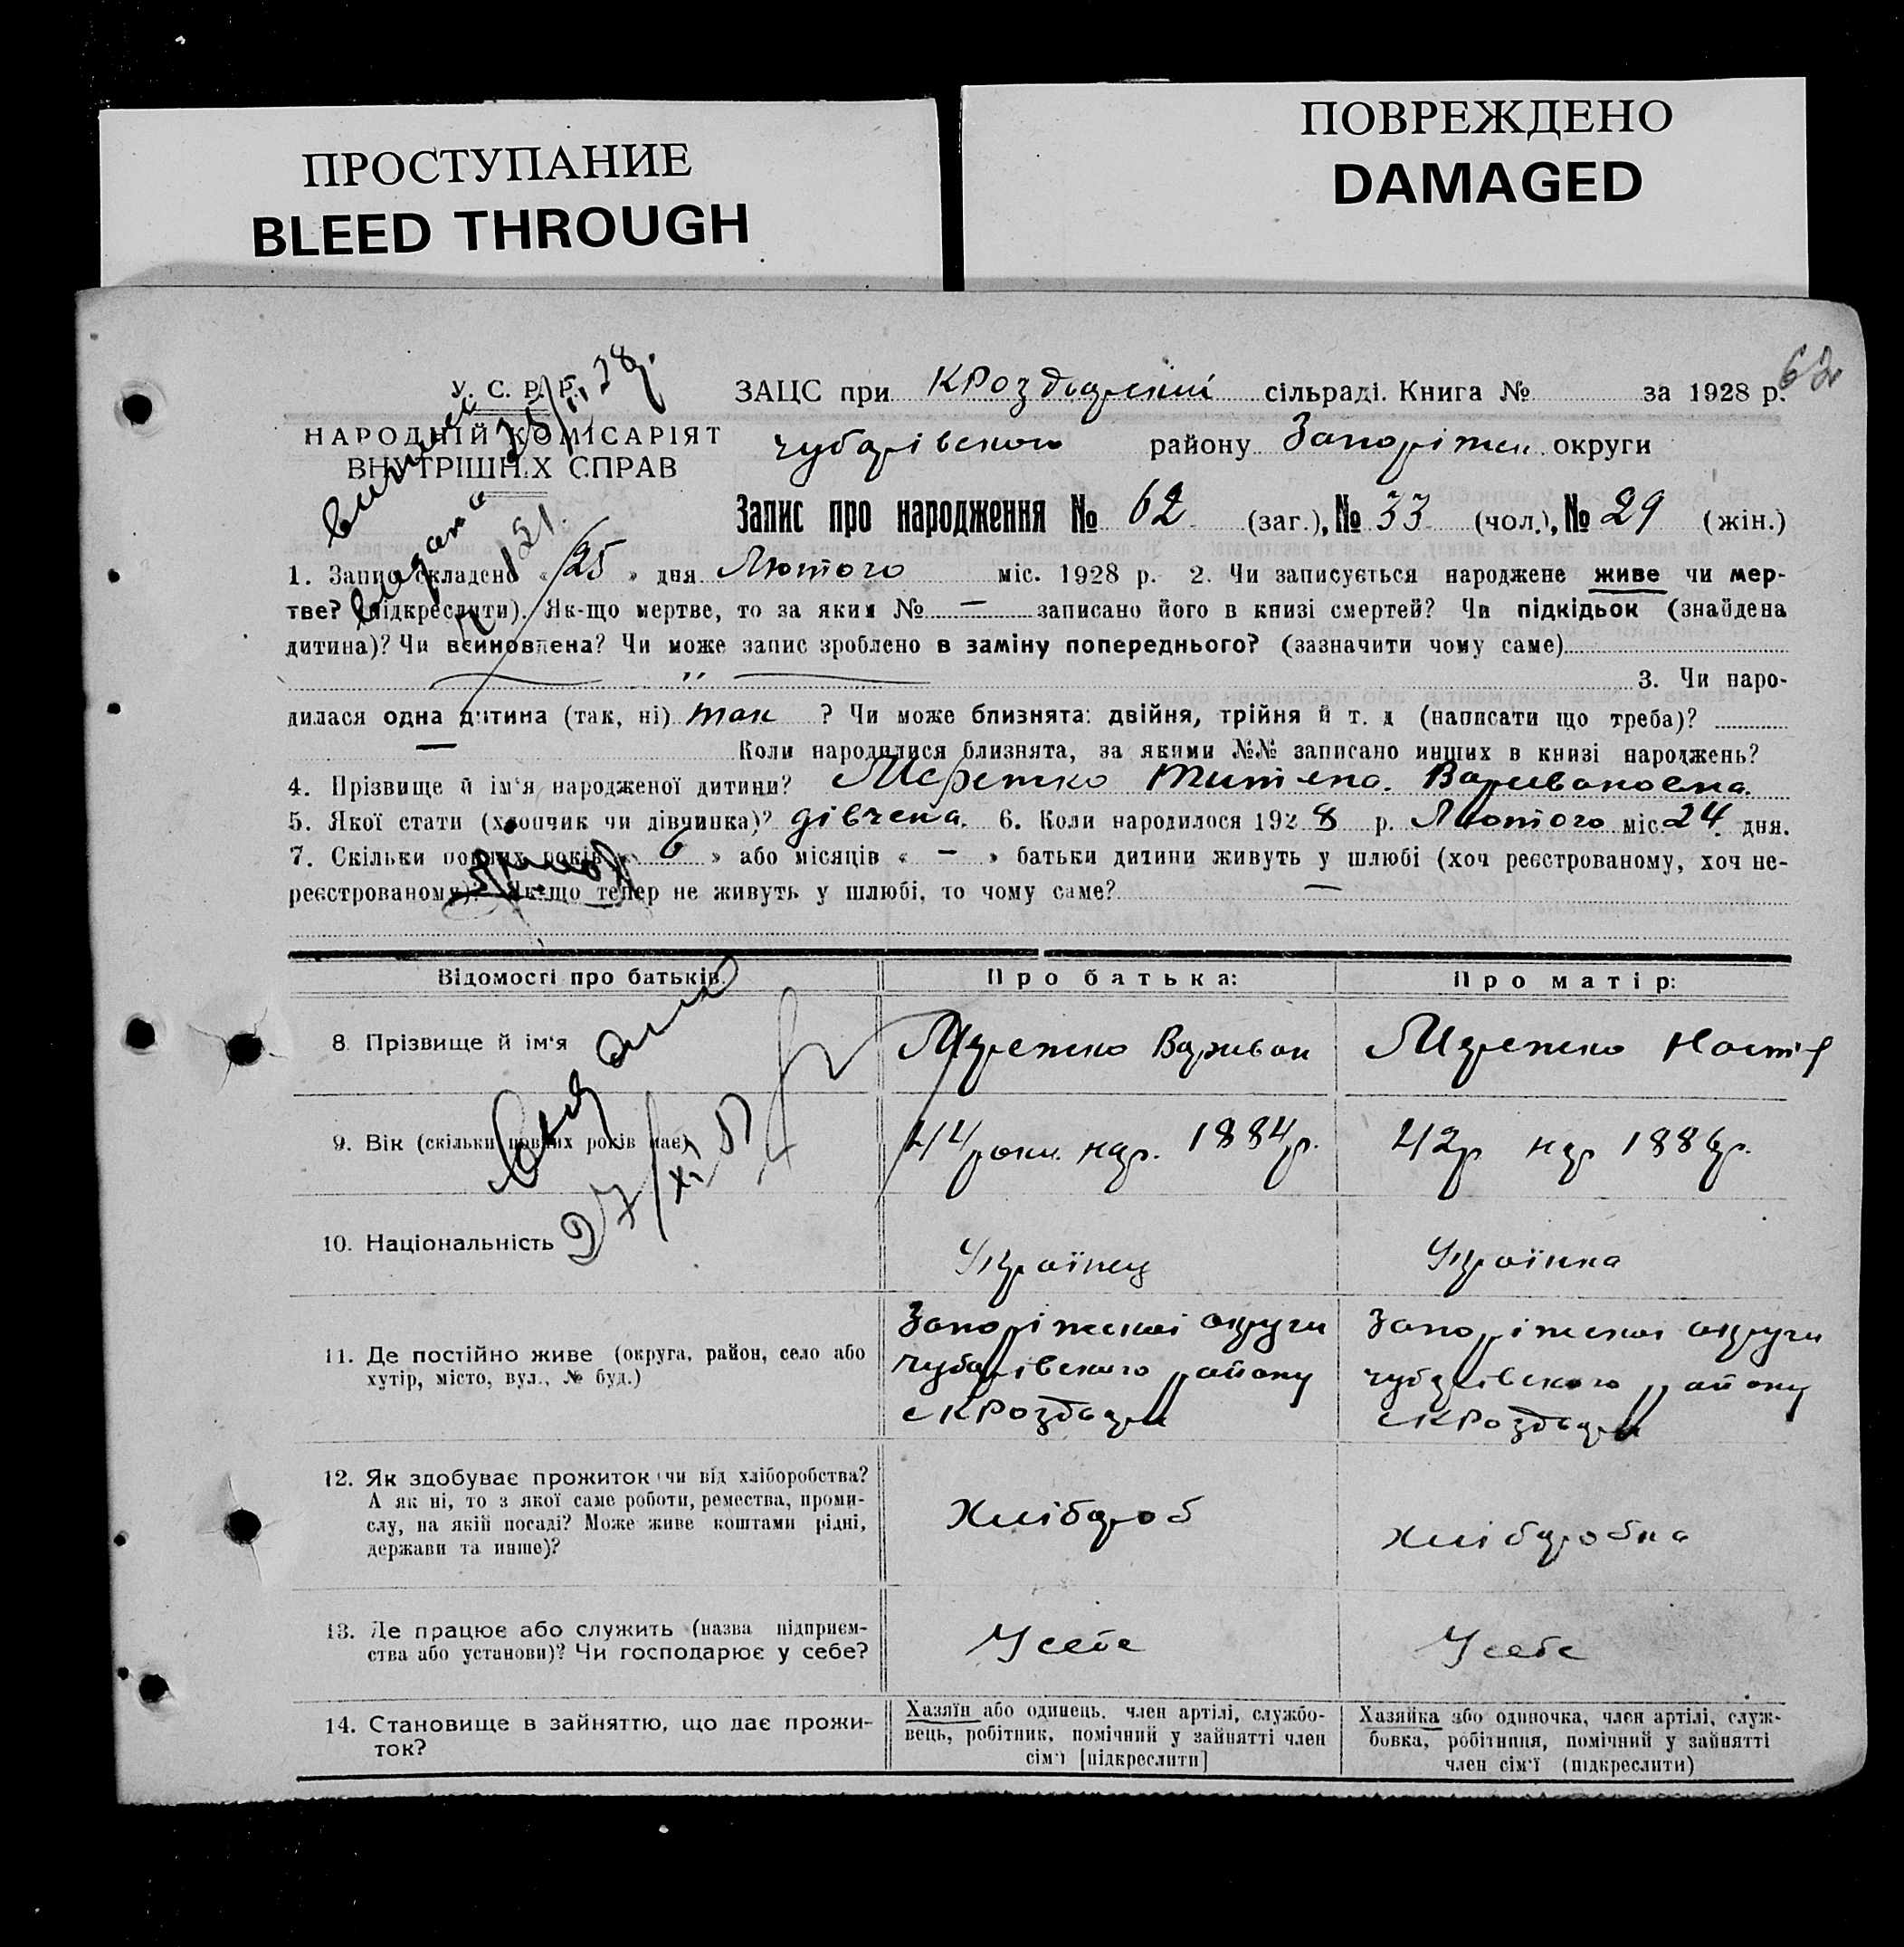 ПРОСТУПАНИЕ
BLEED THROUGH
ПОВРЕЖДЕНО
DAMAGED
62
У. С. Р. Р.
НАРОДНІЙ КОМІСАРІЯТ
ВНУТРІШНІХ СПРАВ
ЗАЦС при сільраді. Книга № за 1928 р.
Чубарівского району Запоріжж. округи
Запис про народження № 62 (заг.), № 33 (чол.), № 29 (жін.)
1. Запис складено « 25 » дня Лютого міс. 1928 р. 2. Чи записується народжене живе чи мер-
тве? (підкреслити). Як-що мертве, то за яким № — записано його в книзі смертей? Чи підкідьок (знайдена
дитина)? Чи всиновлена? Чи може запис зроблено в заміну попереднього? (зазначити чому саме)
3. Чи наро-
дилася одна дитина (так, ні) так ? Чи може близнята: двійня, трійня й т. д (написати що треба)?
— Коли народилися близнята, за якими №№ записано инших в книзі народжень?
4. Прізвище й ім'я народженої дитини?
5. Якої стати (хлопчик чи дівчинка)? дівчена. 6. Коли народилося 1928 р. Лютого міс. 24 дня.
7. Скільки повних років « 6 » або місяців « — » батьки дитини живуть у шлюбі (хоч реєстрованому, хоч не-
реєстрованому)? Як-що тепер не живуть у шлюбі, то чому саме? —
Відомості про батьків.
Про батька:
Про матір:
8. Прізвище й ім'я
Мережко Вариван
Мережко Настя
9. Вік (скільки повних років має)
44 роки нар. 1884 р.
42 р нар 1886 р.
10. Національність
Українец
Українка
11. Де постійно живе (округа, район, село або
хутір, місто, вул., № буд.)
Запоріжскоі округи
Чубарівского району
Запоріжскоі округи
Чубарівского району
12. Як здобуває прожиток (чи від хліборобства?
А як ні, то з якої саме роботи, ремества, проми-
слу, на якій посаді? Може живе коштами рідні,
держави та инше)?
Хлібороб
Хліборобка
13. Де працює або служить (назва підприєм-
ства або установи)? Чи господарює у себе?
У себе
У себе
14. Становище в зайняттю, що дає прожи-
ток?
Хазяїн або одинець, член артілі, службо-
вець, робітник, помічний у зайнятті член
сім'ї [підкреслити]
Хазяйка або одиночка, член артілі, служ-
бовка, робітниця, помічний у зайнятті
член сім'ї (підкреслити)